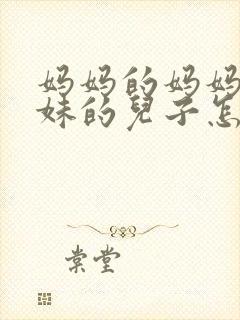 妈妈的妈妈
妹的兒子怎
棠堂